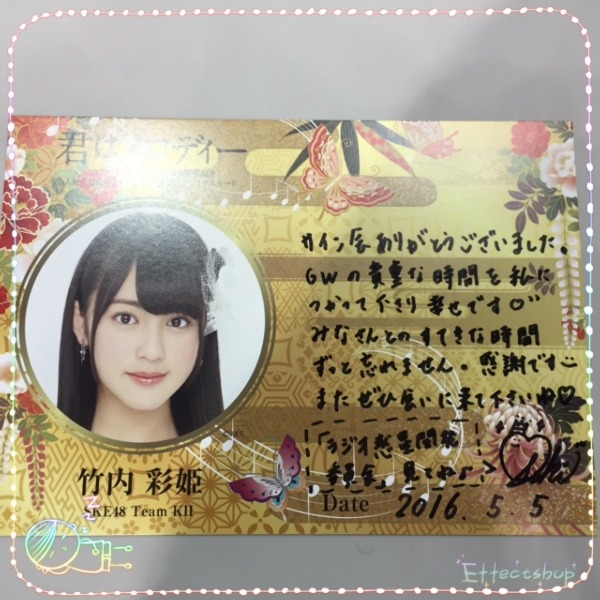 君はメロディー
サイン会ありがとうございました。
GWの貴重な時間を私に
つかって下さり幸せです♡
みなさんとのすてきな時間
ずっと忘れません。感謝です
またぜひ会いに来て下さいね♡
「ラジオ惑星開発
委員会」見てねっ
竹内 彩姫
SKE48 Team KII
Date 2016. 5. 5
Effectshop